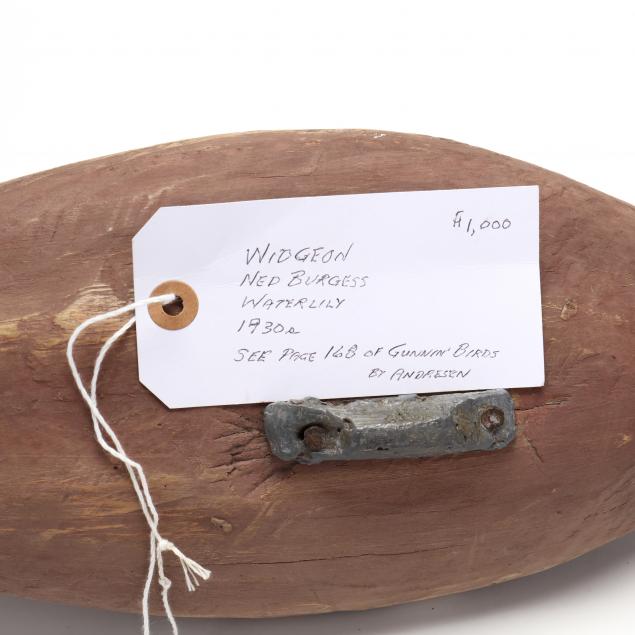 $1,000
WIDGEON
NED BURGESS
WATERLILY
1930s
SEE PAGE 168 OF GUNNIN' BIRDS
BY ANDRESEN